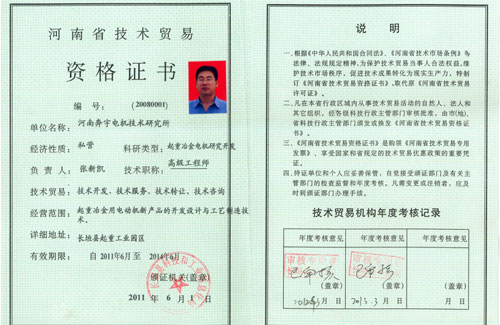 河南省技术贸易
资格证书
编 号：（20080001）
单位名称：河南奔宇电机技术研究所
经济性质：私营 科研类型：起重冶金电机研究开发
负 责 人：张新凯 技术职称：高级工程师
技术贸易：技术开发、技术服务、技术转让、技术咨询
经营范围：起重冶金用电动机新产品的开发设计与工艺制造技术。
详细地址：长垣县起重工业园区
有效期限：自2011年6月至2014年6月
颁证机关(盖章)
2011 年 6 月 1 日
说 明
一、根据《中华人民共和国合同法》、《河南省技术市场条例》等
法律、法规规定精神，为保护技术贸易当事人合法权益，维
护技术市场秩序，促进技术成果转化为现实生产力，特制
订《河南省技术贸易资格证书》，取代原《河南省技术贸易
许可证》。
二、凡在本省行政区域内从事技术贸易活动的自然人、法人和
其它组织，经各级科技行政主管部门审核批准，由市(地)、
省科技行政主管部门颁发或换发《河南省技术贸易资格证
书》。
三、《河南省技术贸易资格证书》是购领《河南省技术贸易专用
发票》、享受国家和省规定的技术贸易优惠政策的重要凭
证。
四、持证单位和个人应妥善保管，自觉接受颁证部门及有关主
管部门的检查监督和年度考核。凡需变更或注销者，应及
时到颁证部门办理手续。
技术贸易机构年度考核记录
年度考核意见 年度考核意见 年度考核意见
已审核 已审核
(盖章) (盖章) (盖章)
年 月 日